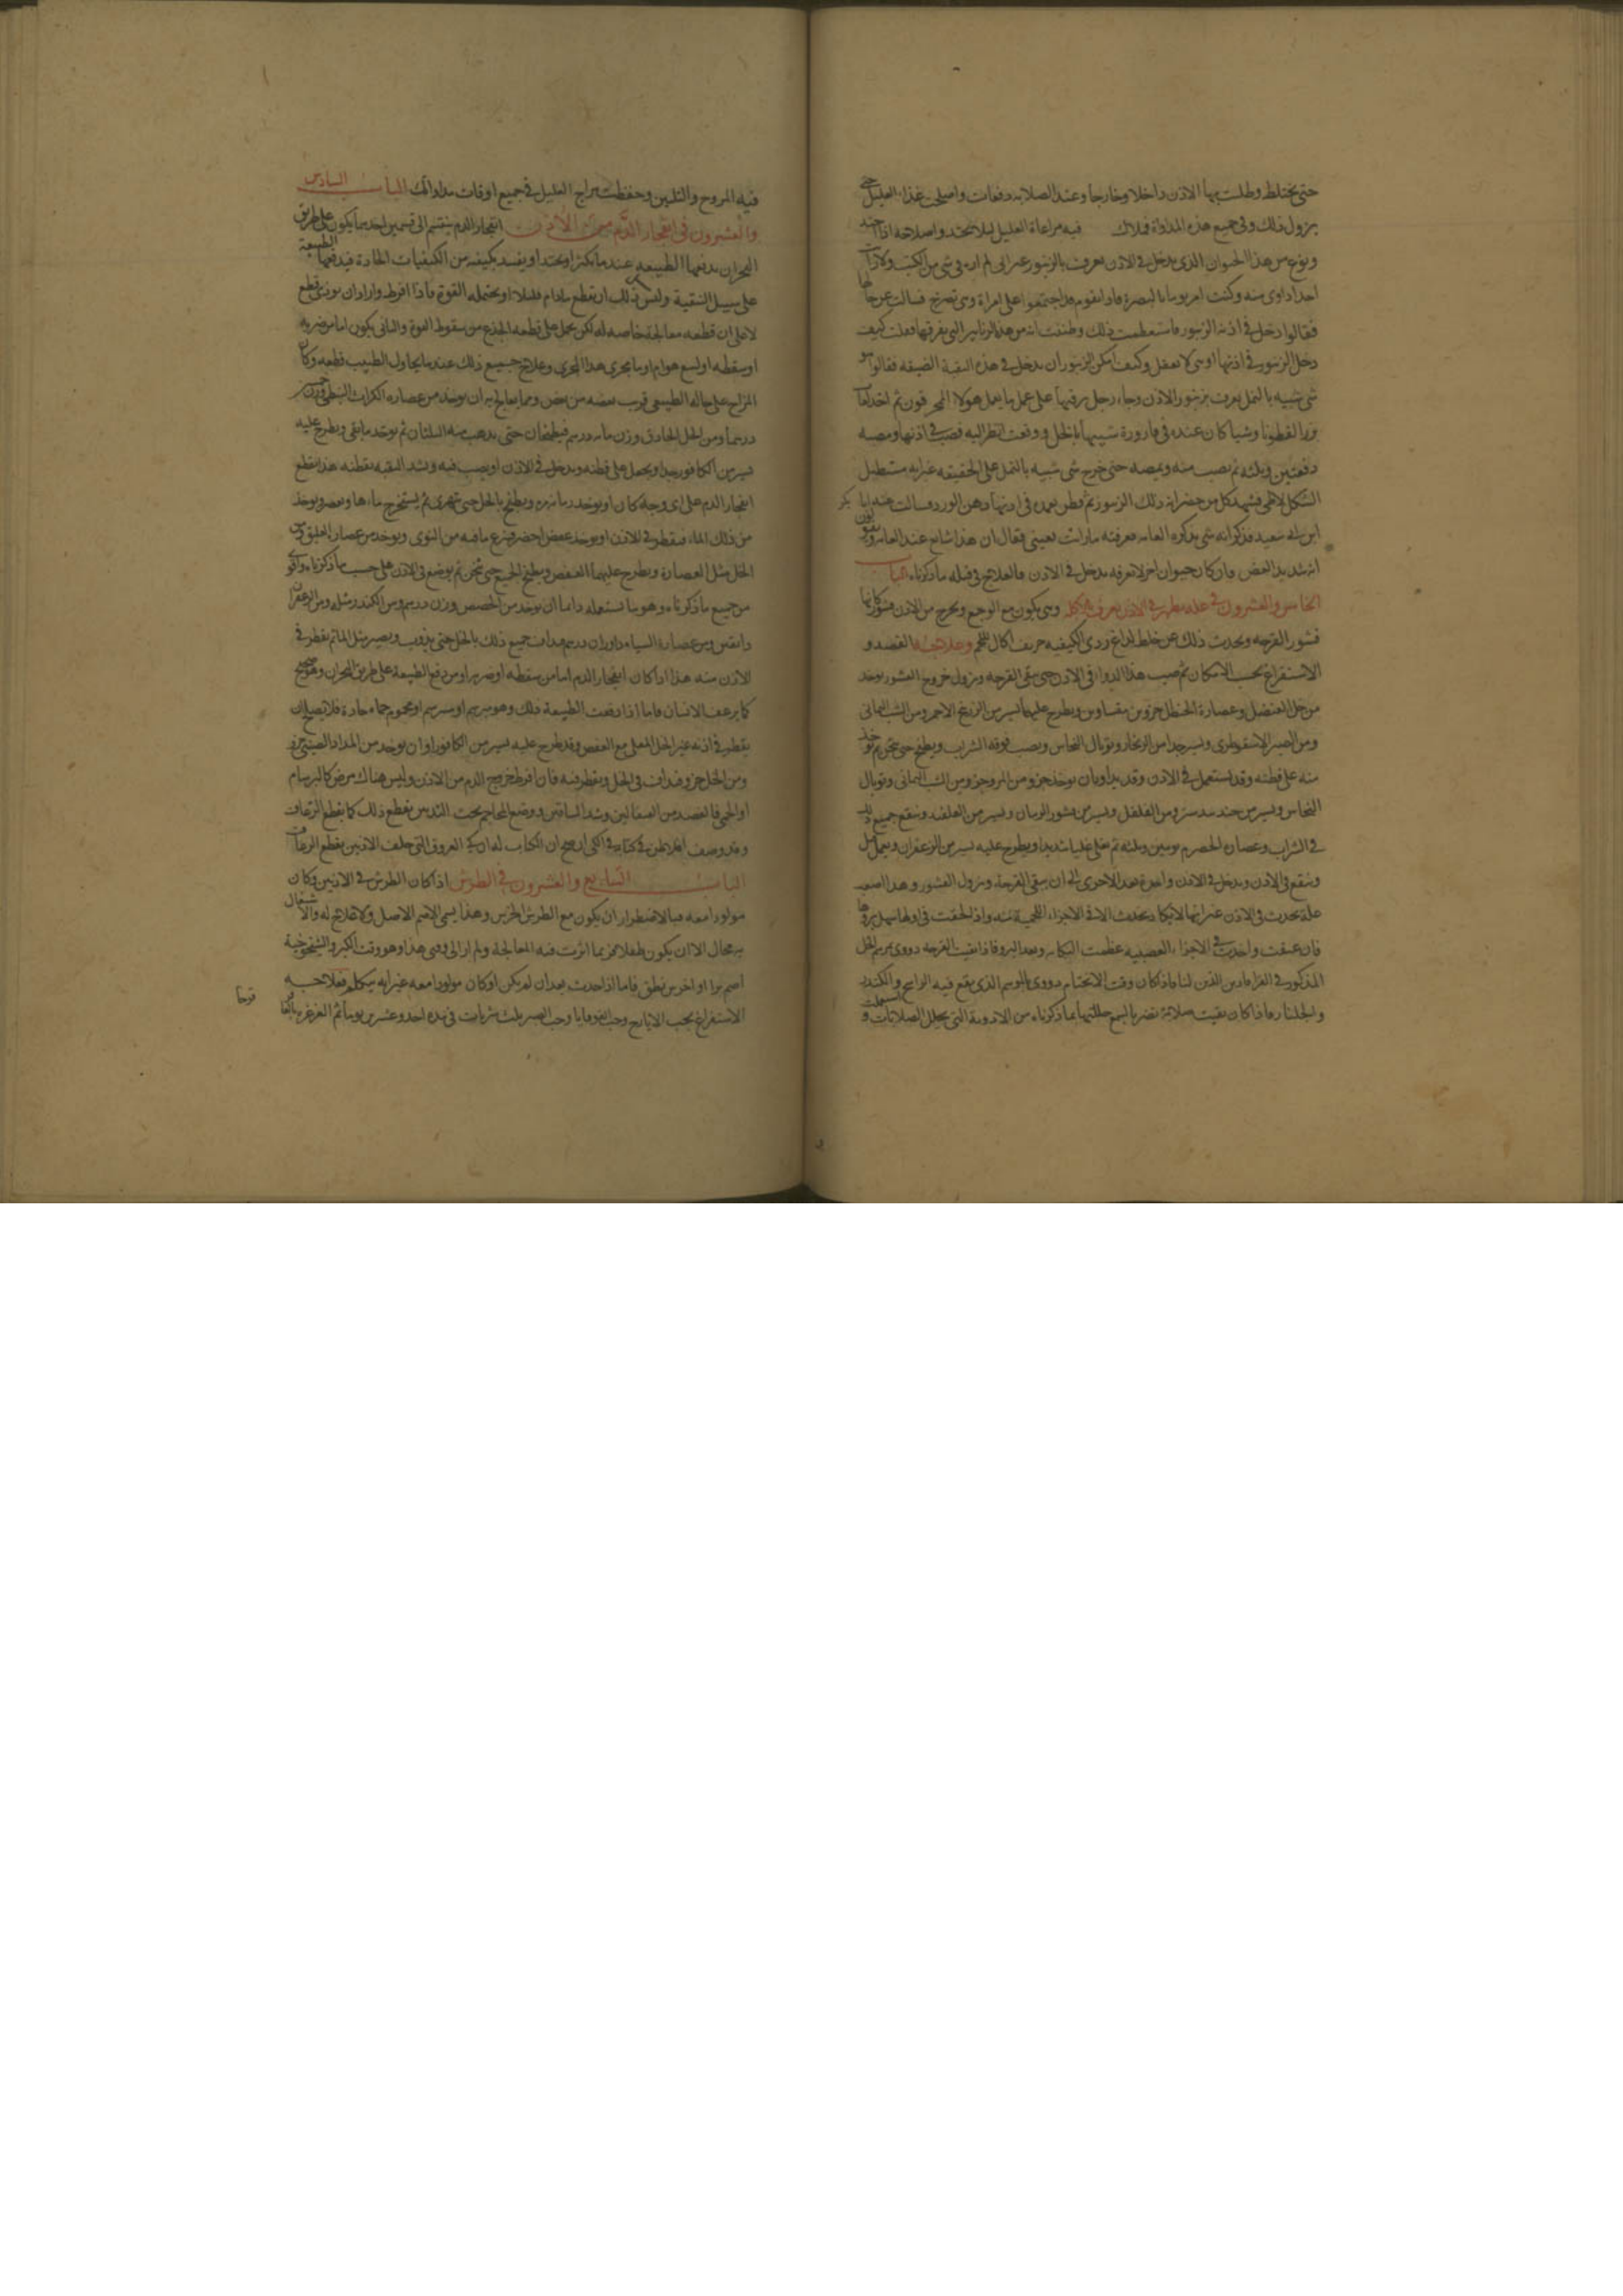 حتى يختلط وطلت بهما الاذن داخلا وخارجا وعند الصلابة دفعات واصلحت غذاء العليل حتى
يزول ذلك وفى جميع هذه المداواة فلا فيه مراعاة العليل ليلا واصلاحه اذا
ونوع من هذا الحيوان الذى يدخل فى الاذن يعرف بالزنبور غير انى لم اره فى شى من الكتب ولا رايت
احدا داوى منه وكنت امر يوما بالبصرة فاذا بقوم قد اجتمعوا على امراة وهى تصرخ فسالت عن حالها
فقالوا دخل فى اذنه الزنبور فاستعظمت ذلك وظننت انه من هذه الزنابير التى نعرفها فقلت كيف
دخل الزنبور فى اذنها اوهى لا تعقل وكيف امكن الزنبور ان يدخل فى هذه الثقبة الضيقة فقالوا هو
شى شبيه بالنمل يعرف بزنبور الاذن وجاء رجل يرقيها على عمل ما يعمل هولاء المخرقون ثم اخذ
بزر القطونا وشيا كان عنده فى قارورة شبيها بالخل ووقفت انظر اليه فصب فى اذنها ومصه
دفعتين وثلثه ثم يصب منه ويمصه حتى خرج شى شبيه بالنمل على الحقيقة غير انه مستطيل
الشكل فشهد كل من حضر انه ذلك الزنبور ثم قطر بعده فى اذنها دهن الورد وسالت عنه ابا بكر
ابن سعيد فذكر انه شى يذكره العامة معرفته ما رايت بعينى فقال ان هذا شايع عند العامة ويقولون
انه شديد العض وان كان حيوان اخر لا نعرفه يدخل فى الاذن فالعلاج فى قتله ما ذكرناه الباب
الخامس والعشرون فى علة تظهر فى الاذن تعرف بالاكلة وهى تكون مع الوجع ويخرج من الاذن قشور كانها
قشور القرحة ويحدث ذلك عن خلط لداغ ردى الكيفيه حريف اكال للحم وعلاجها الفصد و
الاستفراغ بحسب الامكان ثم صب هذا الدواء فى الاذن حتى تنقى القرحة ويزول خروج القشور يوخذ
من خل العنصل وعصارة الحنظل جزوين متساوين ويطرح عليهما يسير من الزرنيخ الاحمر ومن الشب اليمانى
ومن الصبر الاسقوطرى ويسير جدا من الزنجار وتوبال النحاس ويصب فوقه الشراب ويطبخ حتى يثخن ثم توخذ
منه على قطنه وقد يستعمل فى الاذن وقد يداوى بان يوخذ جزو من المر وجزو من الشب اليمانى وتوبال
النحاس ويسير من جندبيدستر ومن الفلفل ويسير من قشور الرمان ويسير من القلقند وينقع جميع ذلك
فى الشراب وعصارة الحصرم يومين وثلثه ثم يغلى غليانا شديدا ويطرح عليه يسير من الزعفران ويعمل
ويدخل فى الاذن واحدة بعد الاخرى الى ان تنقى القرحة ويزول القشور
علة تحدث فى الاذن غير انها لا تكاد تحدث الا فى الاجزاء اللحمية منه واذا لحقت فى اولها سهل بروها
فان عتقت واخذت فى الاجزاء العصبيه عظمت النكاية وبعد البرو فاذا نقيت القرحة دووى بمرهم الخل
المذكور فى القراباذين الذى لنا فاذا كان وقت الالتحام دووى بالمرهم الذى يقع فيه الراتينج والكندر
والجلنار فاذا كان بقيت صلابة تضر بالسمع حللتها بما ذكرناه من الادوية التى يحلل الصلابات واستعملت
فيه المروخ والتليين وحفظت مزاج العليل فى جميع اوقات مداواتك الباب السادس
والعشرون فى انفجار الدم من الاذن انفجار الدم ينقسم الى قسمين احدهما يكون على طريق
البحران يدفعها الطبيعه عند ما يكثر او يحتد او يفسد بكيفيه من الكيفيات الحادة فيدفعها الطبيعة
على سبيل التنقية وليس ذلك ان يقطع مادام قليلا او يحتمله القوة فاذا افرط واراد ان يوذى قطع
لا على ان قطعه معالجة خاصه له لكن يحمل على قطعه الجزع من سقوط القوة والثانى يكون اما من ضربه
او سقطه او لسع هوام او ما يجرى هذا المجرى وعلاج جميع ذلك عند ما يحاول الطبيب قطعه وكان
المزاج على حاله الطبيعى قريب بعضه من بعض ومما يعالج به ان يوخذ من عصارة الكراث النبطى وزن
درهما ومن الخل الحاذق وزن مايه درهم فيطبخان حتى يذهب منه الثلثان ثم يوخذ ما بقى ويطرح عليه
يسير من الكافور جدا ويحمل على قطنه ويدخل فى الاذن او يصب فيه ويشد الثقبه بقطنه هذا يقطع
انفجار الدم على اى وجه كان او يوخذ رمانه مره ويطبخ بالخل حتى تتهرى ثم يستخرج ماءها ويعصر ويوخذ
من ذلك الماء فيقطر فى الاذن او يوخذ عفص اخضر فينزع ما فيه من النوى ويوخذ من عصارة العليق ومن
الخل مثل العصارة ويطرح عليهما العفص ويطبخ الجميع حتى يثخن ثم يوضع فى الاذن على حسب ما ذكرناه واقوى
من جميع ما ذكرناه وهو ما نستعمله دايما ان يوخذ من الحضض وزن درهم ومن الكندر مثله ومن الزعفران
دانقين ومن عصارة السماق وزن درهم يداف جميع ذلك بالخل حتى يذوب ويصير مثل الماء ثم يقطر فى
الاذن منه هذا اذا كان انفجار الدم اما من سقطه او ضربه او من دفع الطبيعة على طريق البحران وهو صحيح
كما يرعف الانسان فاما اذا دفعت الطبيعة ذلك وهو مبرسم او مسرسم او محموم حماء حادة فلا تصلح ان
يقطر فى اذنه غير الخل المغلى مع العفص وقد طرح عليه يسير من الكافور او ان يوخذ من المداد الصينى جزو
ومن الخل جزو فيداف فى الخل ويقطر فيه فان افرط خروج الدم من الاذن وليس هناك مرض كالبرسام
او الحمى فالفصد من القيفالين وشد الساقين ووضع المحاجم تحت الثديين يقطع ذلك كما يقطع الرعاف
وقد وصف افلاطن فى كتابه فى الكى ان صح ان الكتاب له ان كى العروق التى خلف الاذنين يقطع الرعاف
الباب السابع والعشرون فى الطرش اذا كان الطرش فى الاذنين وكان
مولودا معه فبالاضطرار ان يكون مع الطرش الخرس وهذا يسمى الاصم الاصل ولا علاج له والاشتغال
به محال الا ان يكون طفلا فربما اثرت فيه المعالجة ولم ار الى وقتى هذا وهو وقت الكبر والشيخوخية
اصم برا او اخرس نطق فاما اذا حدث بعد ان لم يكن او كان مولودا معه غير انه يتكلم فعلاجه
الاستفراغ بحب الايارج وحب القوقايا وحب الصبر ثلث شربات فى مدة احد وعشرين يوما ثم الغرغرة بالعا
قرحا